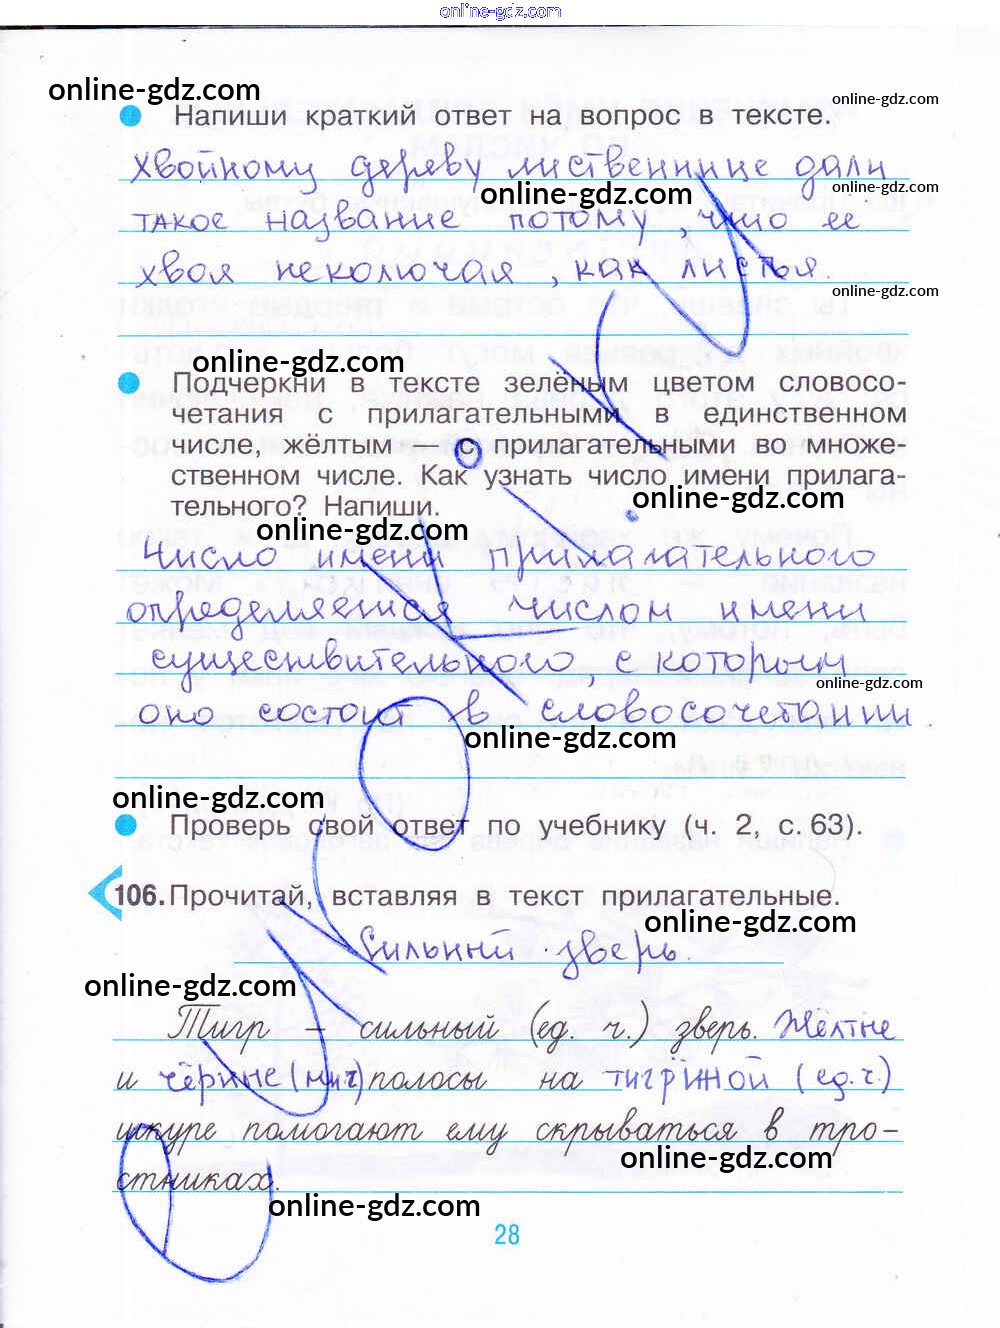 online-gdz.com
online-gdz.com
online-gdz.com
Напиши краткий ответ на вопрос в тексте.
Хвойному дереву лиственнице дали
online-gdz.com
online-gdz.com
такое название потому, что ее
хвоя неколючая, как листья.
online-gdz.com
online-gdz.com
Подчеркни в тексте зелёным цветом словосо-
четания с прилагательными в единственном
числе, жёлтым — с прилагательными во множе-
ственном числе. Как узнать число имени прилага-
тельного? Напиши.
online-gdz.com
online-gdz.com
Число имени прилагательного
определяется числом имени
существительного, с которым
online-gdz.com
оно состоит в словосочетании
online-gdz.com
online-gdz.com
Проверь свой ответ по учебнику (ч. 2, с. 63).
106. Прочитай, вставляя в текст прилагательные.
online-gdz.com
Сильний зверь.
online-gdz.com
Тигр — сильный (ед. ч.) зверь. Жёлтие
и чёрние (мн.ч) полосы на тигриной (ед.ч.)
шкуре помогают ему скрываться в тро-
online-gdz.com
стниках.
online-gdz.com
28